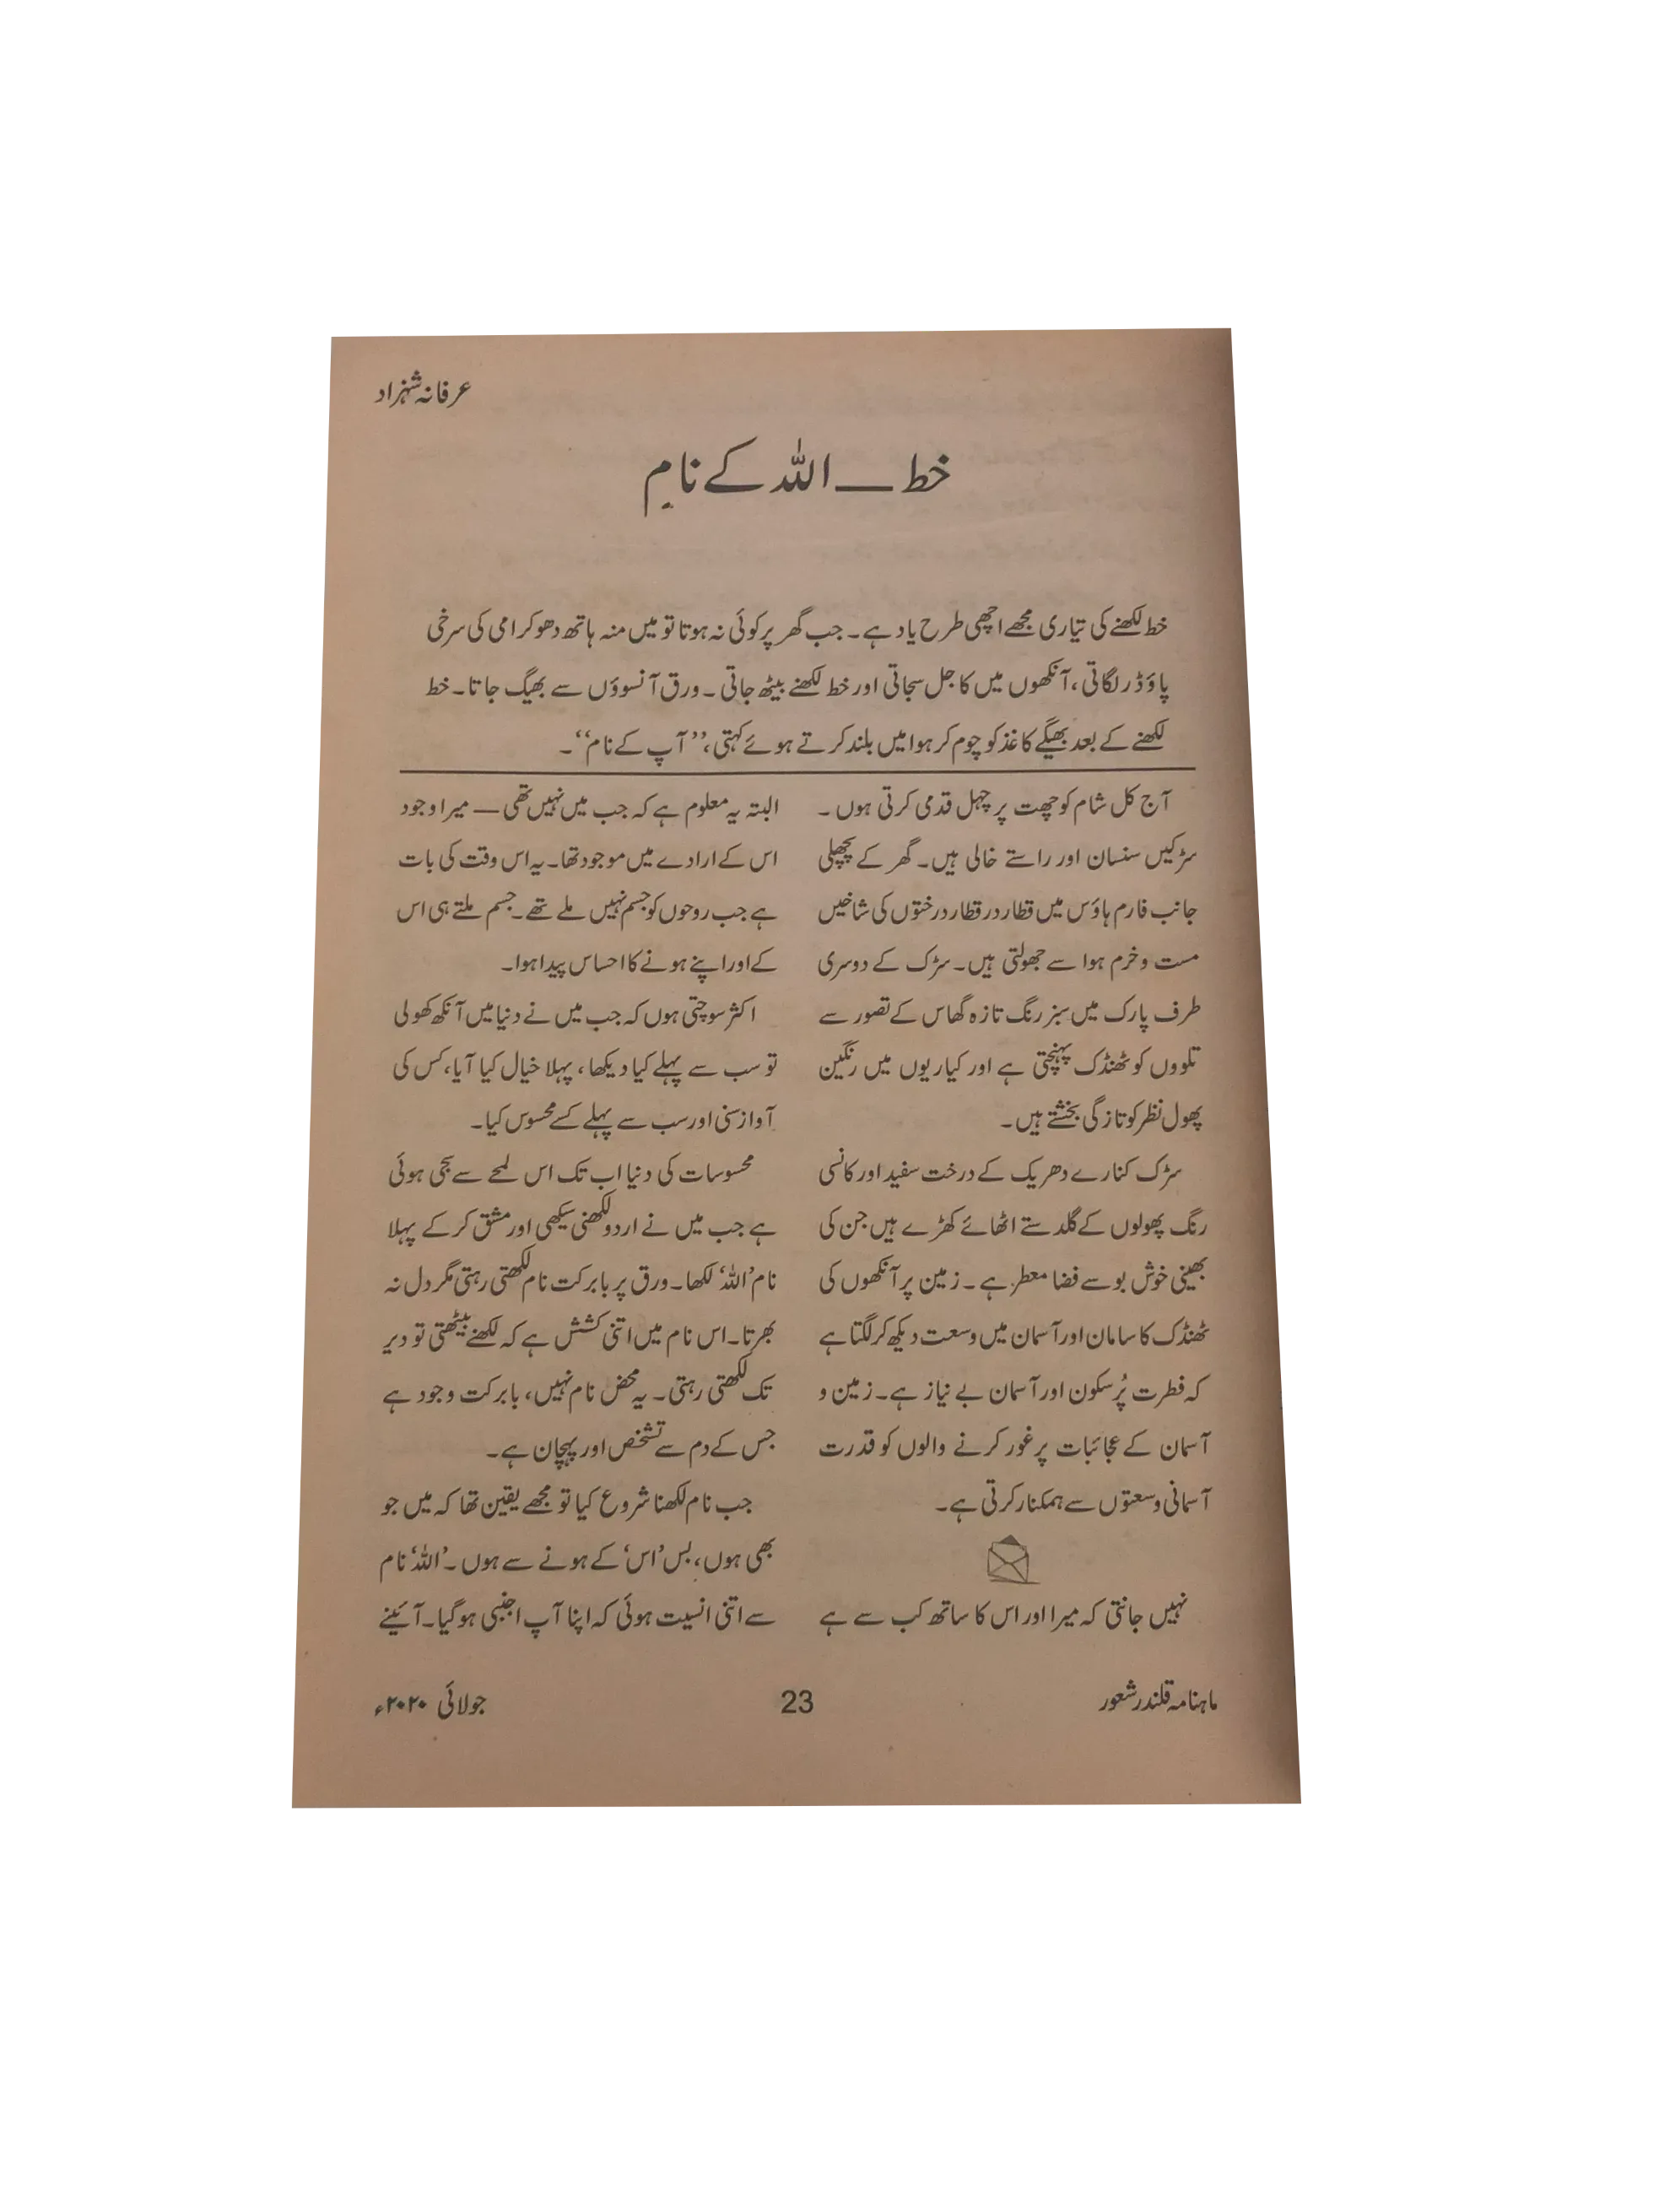 عرفانہ شہزاد
خط — اللہ کے نام
خط لکھنے کی تیاری مجھے اچھی طرح یاد ہے۔ جب گھر پر کوئی نہ ہوتا تو میں منہ ہاتھ دھو کر امی کی سرخی
پاؤڈر لگاتی، آنکھوں میں کاجل سجاتی اور خط لکھنے بیٹھ جاتی۔ ورق آنسوؤں سے بھیگ جاتا۔ خط
لکھنے کے بعد بھیگے کاغذ کو چوم کر ہوا میں بلند کرتے ہوئے کہتی، ’’آپ کے نام‘‘۔
آج کل شام کو چھت پر چہل قدمی کرتی ہوں۔
سڑکیں سنسان اور راستے خالی ہیں۔ گھر کے پچھلی
جانب فارم ہاؤس میں قطار در قطار درختوں کی شاخیں
مست و خرم ہوا سے جھولتی ہیں۔ سڑک کے دوسری
طرف پارک میں سبز رنگ تازہ گھاس کے تصور سے
تلووں کو ٹھنڈک پہنچتی ہے اور کیاریوں میں رنگین
پھول نظر کو تازگی بخشتے ہیں۔
سڑک کنارے دھریک کے درخت سفید اور کانسی
رنگ پھولوں کے گلدستے اٹھائے کھڑے ہیں جن کی
بھینی خوش بو سے فضا معطر ہے۔ زمین پر آنکھوں کی
ٹھنڈک کا سامان اور آسمان میں وسعت دیکھ کر لگتا ہے
کہ فطرت پُرسکون اور آسمان بے نیاز ہے۔ زمین و
آسمان کے عجائبات پر غور کرنے والوں کو قدرت
آسمانی وسعتوں سے ہمکنار کرتی ہے۔
نہیں جانتی کہ میرا اور اس کا ساتھ کب سے ہے
البتہ یہ معلوم ہے کہ جب میں نہیں تھی — میرا وجود
اس کے ارادے میں موجود تھا۔ یہ اس وقت کی بات
ہے جب روحوں کو جسم نہیں ملے تھے۔ جسم ملتے ہی اس
کے اور اپنے ہونے کا احساس پیدا ہوا۔
اکثر سوچتی ہوں کہ جب میں نے دنیا میں آنکھ کھولی
تو سب سے پہلے کیا دیکھا، پہلا خیال کیا آیا، کس کی
آواز سنی اور سب سے پہلے کسے محسوس کیا۔
محسوسات کی دنیا اب تک اس لمحے سے سجی ہوئی
ہے جب میں نے اردو لکھنی سیکھی اور مشق کر کے پہلا
نام ’اللہ‘ لکھا۔ ورق پر بابرکت نام لکھتی رہتی مگر دل نہ
بھرتا۔ اس نام میں اتنی کشش ہے کہ لکھنے بیٹھتی تو دیر
تک لکھتی رہتی۔ یہ محض نام نہیں، بابرکت وجود ہے
جس کے دم سے تشخص اور پہچان ہے۔
جب نام لکھنا شروع کیا تو مجھے یقین تھا کہ میں جو
بھی ہوں، بس ’اس‘ کے ہونے سے ہوں۔ ’اللہ‘ نام
سے اتنی انسیت ہوئی کہ اپنا آپ اجنبی ہو گیا۔ آئینے
ماہنامہ قلندر شعور
23
جولائی ۲۰۲۰ء